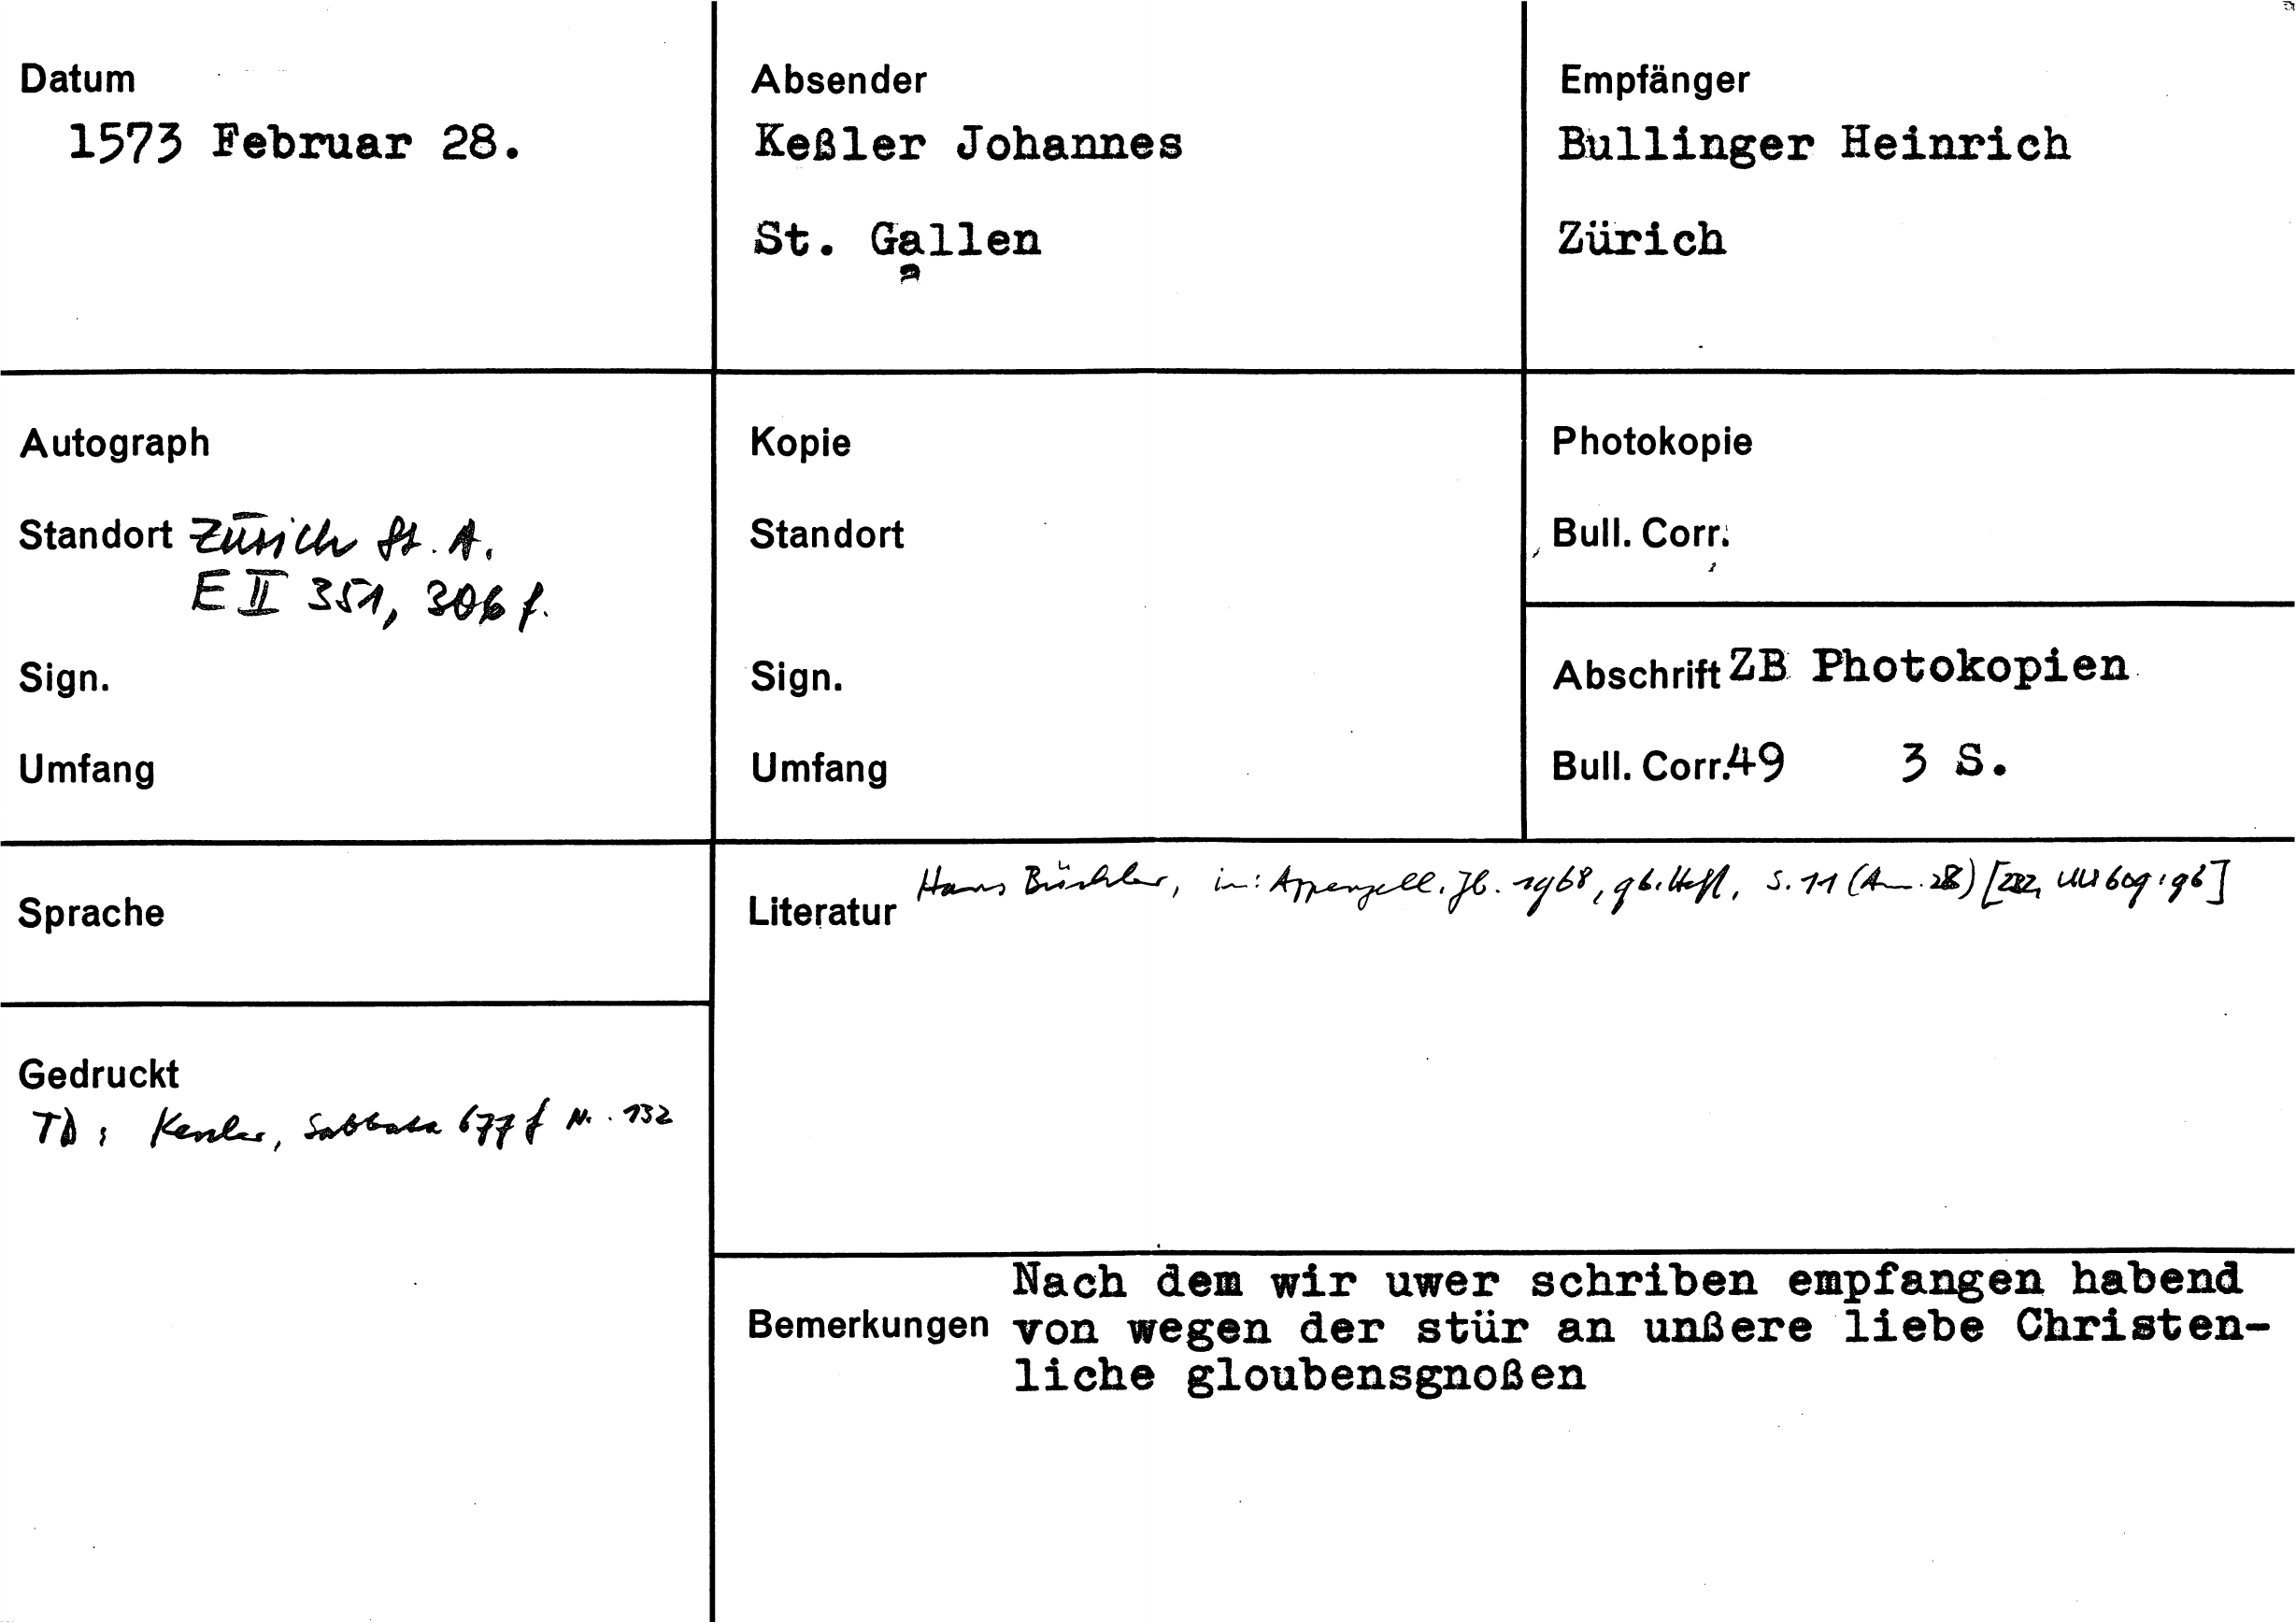 Datum
1573 Februar 28.
Absender
Keßler Johannes
St. Gallen
a
Empfänger
Bullinger Heinrich
Zürich
Autograph
Standort Zürich St. A.
E II 351, 306 f.
Sign.
Umfang
Kopie
Standort
Sign.
Umfang
Photokopie
Bull. Corr.
Abschrift ZB Photokopien
Bull. Corr. 49 3 S.
Sprache
Literatur Hans Büchler, in: Appenzell. Jb. 1968, 96. Heft, S. 11 (Anm. 28)
Gedruckt
TD: Kessler, Sabbata 677 f Nr. 132
Bemerkungen
Nach dem wir uwer schriben empfangen habend
von wegen der stür an unßere liebe Christen-
liche gloubensgnoßen